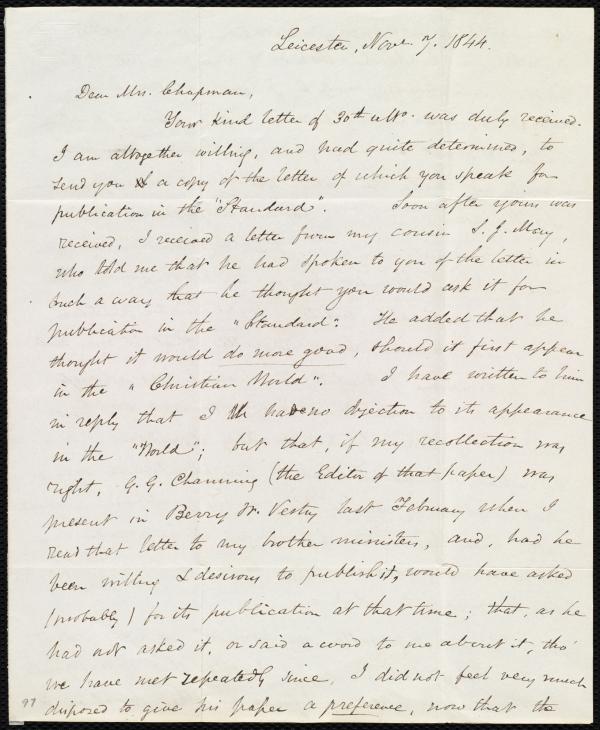 Leicester, Nov. 7. 1844.
Dear Mrs. Chapman,
Your kind letter of 30th ulto. was duly received.
I am altogether willing, and had quite determined, to
send you a copy of the letter of which you speak for
publication in the "Standard". Soon after yours was
received, I received a letter from my cousin S. J. May,
who told me that he had spoken to you of the letter in
such a way, that he thought you would ask it for
publication in the "Standard". He added that he
thought it would do more good, should it first appear
in the "Christian World". I have written to him
in reply that I have no objection to its appearance
in the "World"; but that, if my recollection was
right, G. G. Channing (the Editor of that paper) was
present in Berry St. Vestry last February when I
read that letter to my brother ministers, and, had he
been willing & desirous to publish it, would have asked
(probably) for its publication at that time; that, as he
had not asked it, or said a word to me about it, tho'
we have met repeatedly since, I did not feel very much
disposed to give his paper a preference, now that the